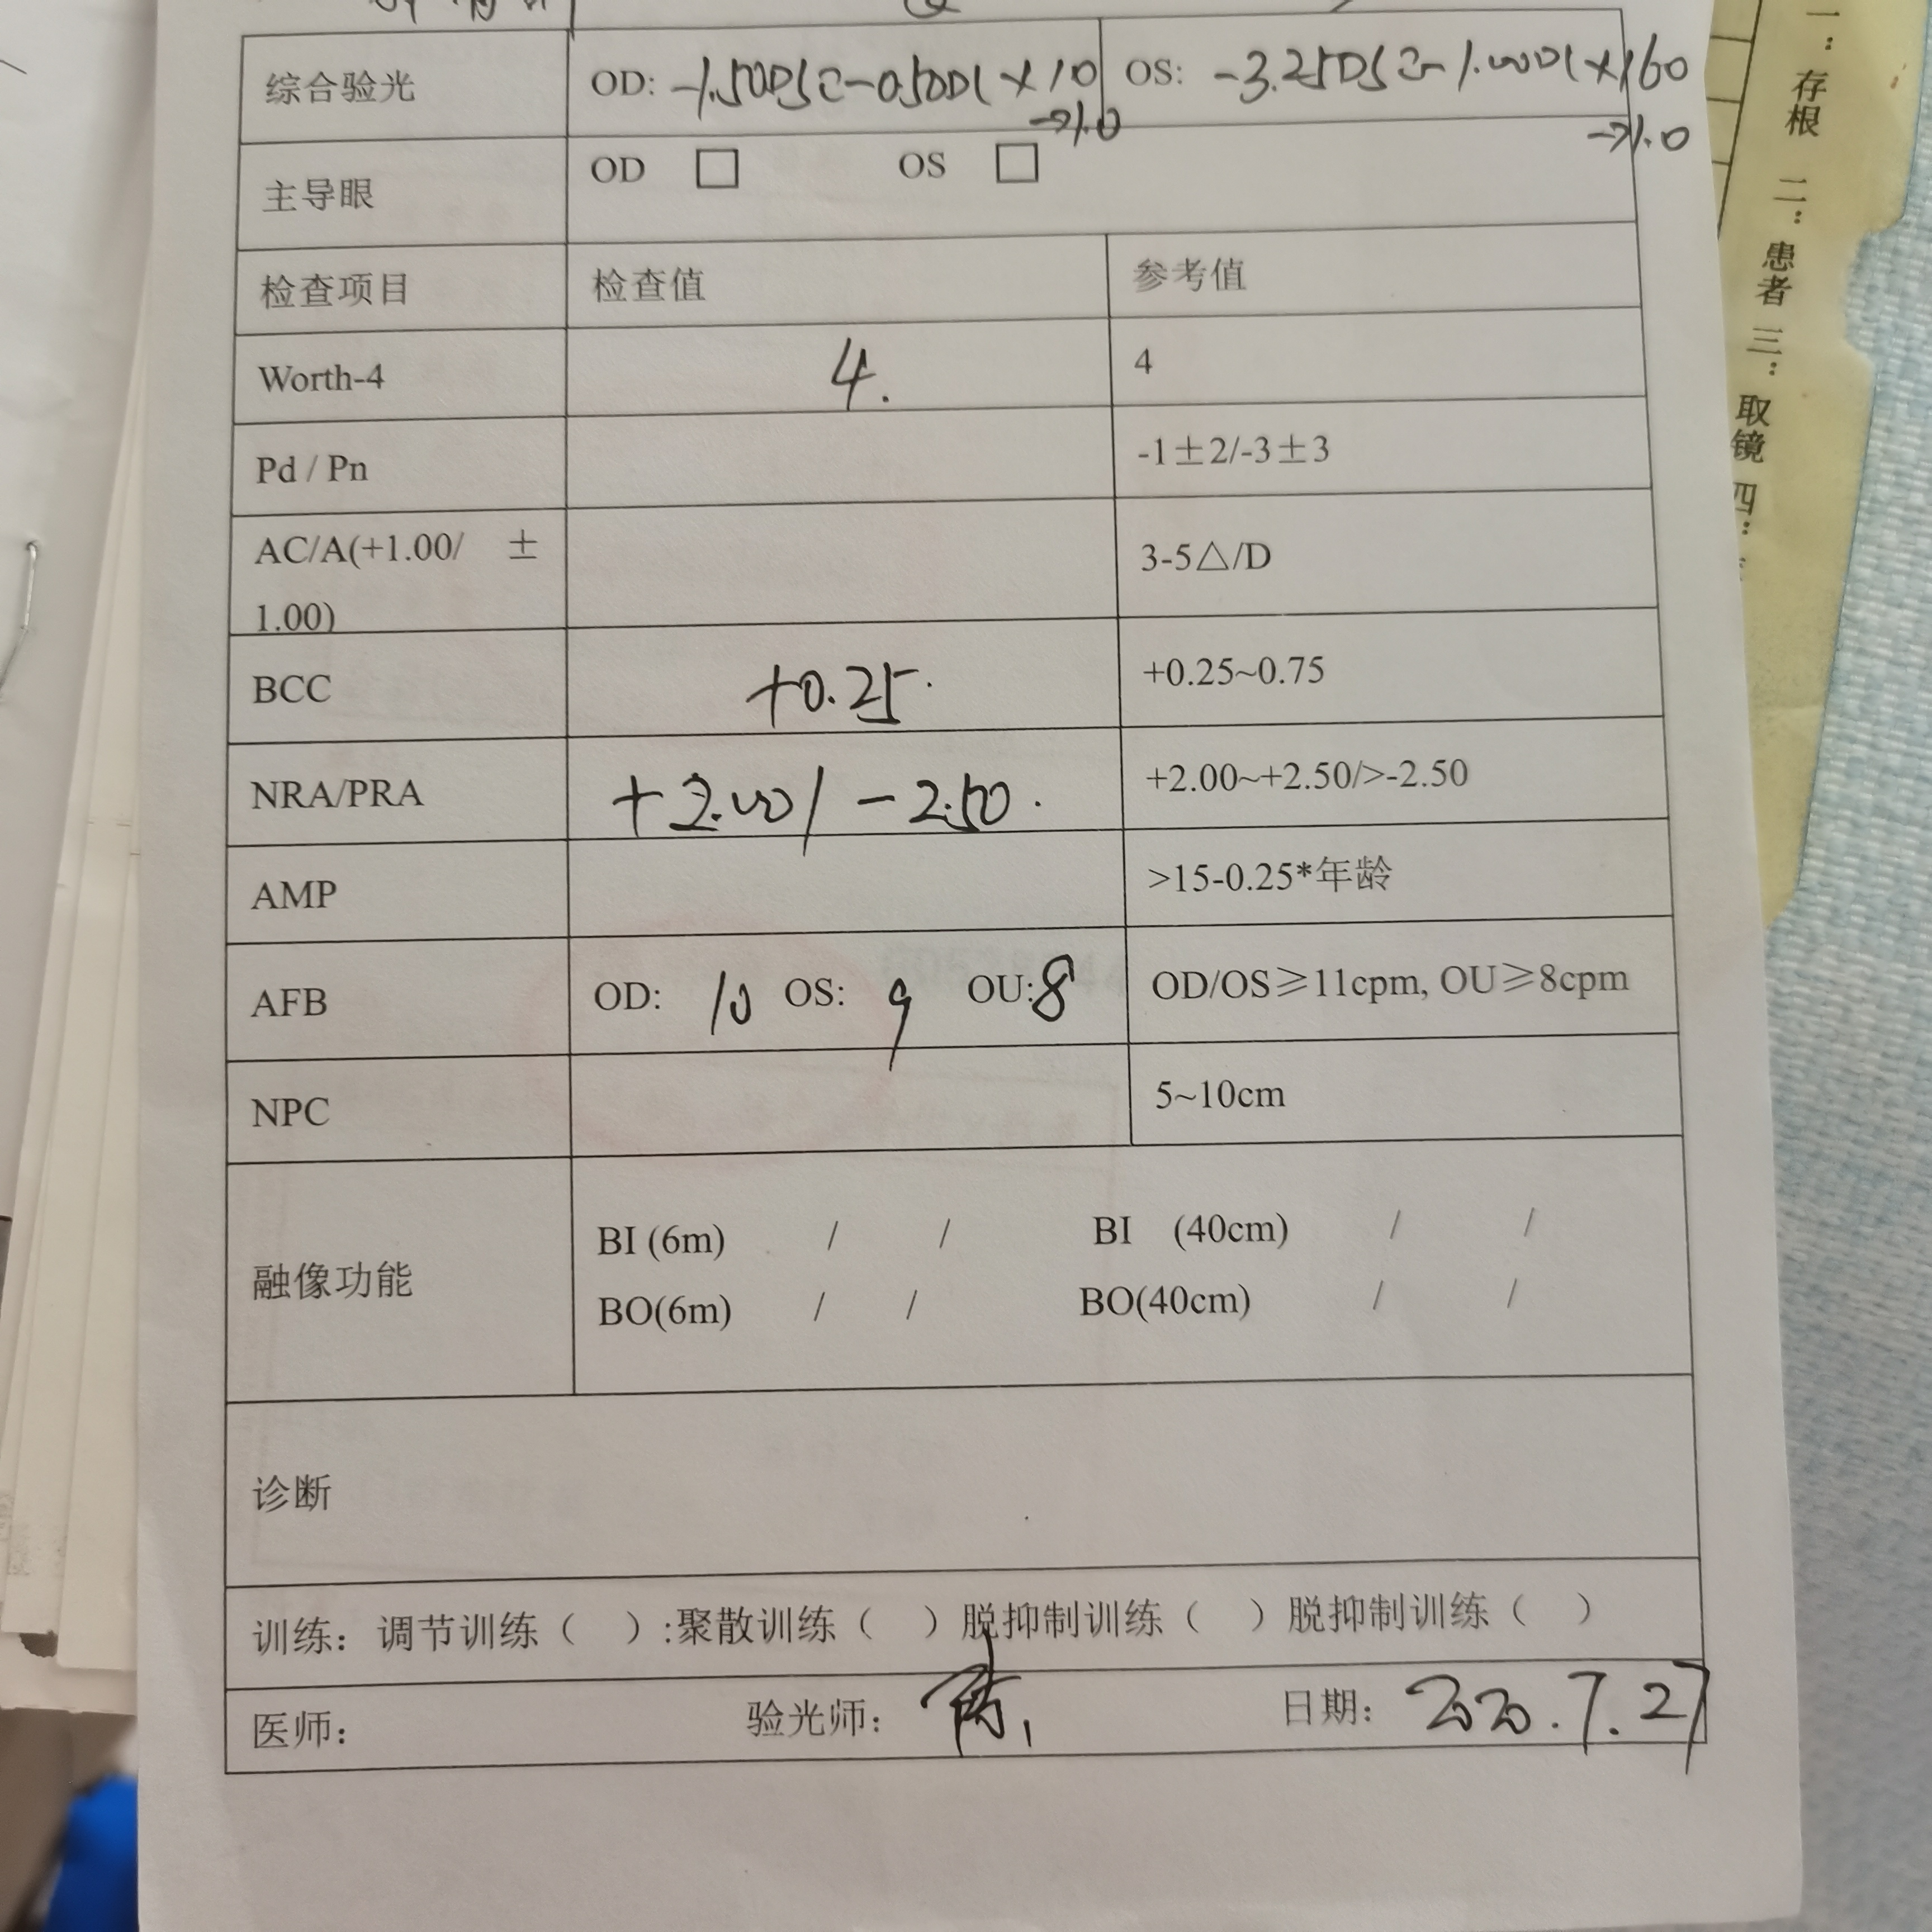 综合验光 OD: -1.50DS⊂-0.50DC×10 →1.0 OS: -3.25DS⊂-1.00DC×160 →1.0
主导眼 OD □ OS □
检查项目 检查值 参考值
Worth-4 4. 4
Pd / Pn -1±2/-3±3
AC/A(+1.00/ ±
1.00) 3-5△/D
BCC +0.25. +0.25~0.75
NRA/PRA +2.00/-2.50. +2.00~+2.50/>-2.50
AMP >15-0.25*年龄
AFB OD: 10 OS: 9 OU:8 OD/OS≥11cpm, OU≥8cpm
NPC 5~10cm
融像功能
BI (6m) / / BI (40cm) / /
BO(6m) / / BO(40cm) / /
诊断
训练：调节训练（ ）:聚散训练（ ）脱抑制训练（ ）脱抑制训练（ ）
医师： 验光师： 日期：2020.7.27
一：存根 二：患者 三：取镜 四：